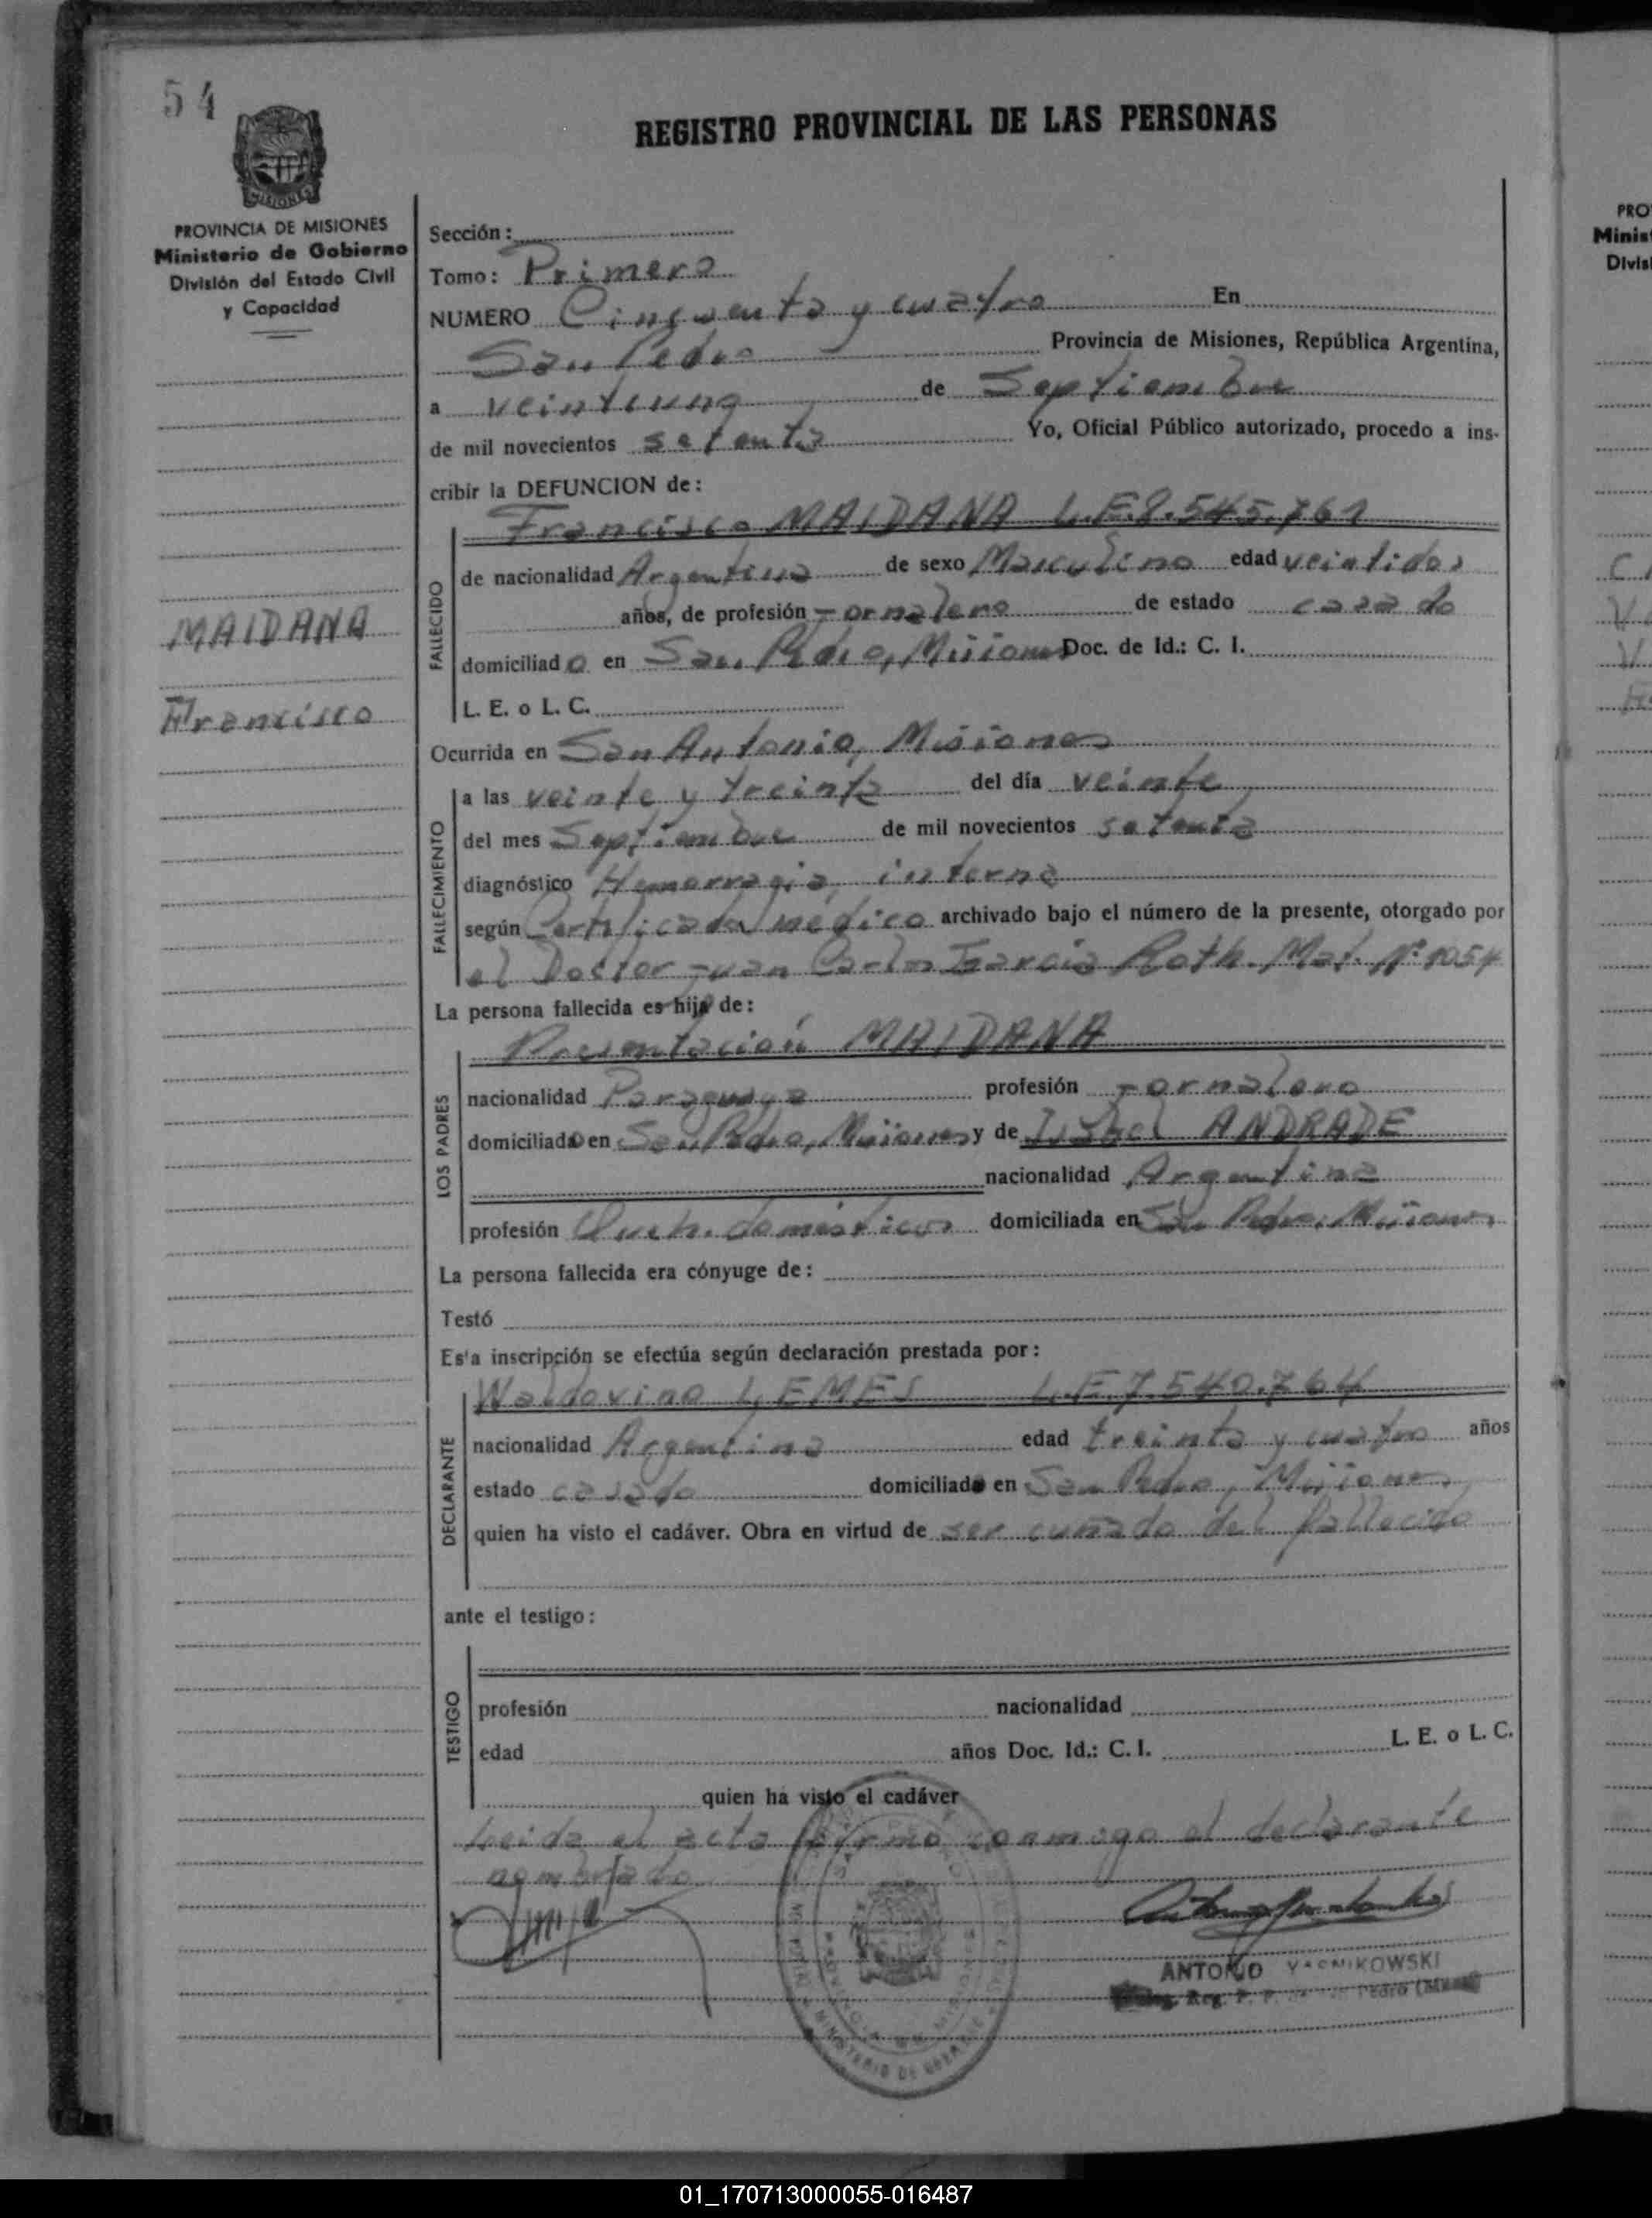 54
REGISTRO PROVINCIAL DE LAS PERSONAS
PROVINCIA DE MISIONES
Ministerio de Gobierno
División del Estado Civil
y Capacidad
MAIDANA
Francisco
Sección:
Tomo: Primero
NUMERO Cinquenta y cuatro En
San Pedro Provincia de Misiones, República Argentina,
a veintiuno de Septiembre
de mil novecientos setenta Yo, Oficial Público autorizado, procedo a ins-
cribir la DEFUNCION de:
Francisco MAIDANA L.E.8.545.761
FALLECIDO
de nacionalidad Argentina de sexo Masculino edad veintidos
años, de profesión Jornalero de estado casado
domiciliado en San Pedro, Misiones Doc. de Id.: C. I.
L. E. o L. C.
Ocurrida en San Antonio, Misiones
FALLECIMIENTO
a las veinte y treinta del día veinte
del mes Septiembre de mil novecientos setenta
diagnóstico Hemorragia interna
según Certificado médico archivado bajo el número de la presente, otorgado por
el Doctor Juan Carlos Garcia Roth. Mat. Nº 1054
La persona fallecida es hijo de:
LOS PADRES
Presentación MAIDANA
nacionalidad Paraguaya profesión Jornalero
domiciliado en San Pedro, Misiones y de Isabel ANDRADE
nacionalidad Argentina
profesión Queh. domésticos domiciliada en San Pedro, Misiones
La persona fallecida era cónyuge de:
Testó
Esta inscripción se efectúa según declaración prestada por:
DECLARANTE
Waldovino LEMES L.E.7.540.764
nacionalidad Argentina edad treinta y cuatro años
estado casado domiciliado en San Pedro, Misiones
quien ha visto el cadáver. Obra en virtud de ser cuñado del fallecido
ante el testigo:
TESTIGO
profesión nacionalidad
edad años Doc. Id.: C. I. L. E. o L. C.
quien ha visto el cadáver
Leida el acta firmó conmigo el declarante
nombrado
ANTONIO
Reg. P. P. Pedro
MINISTERIO DE
PRO
Minist
Divis
01_170713000055-016487